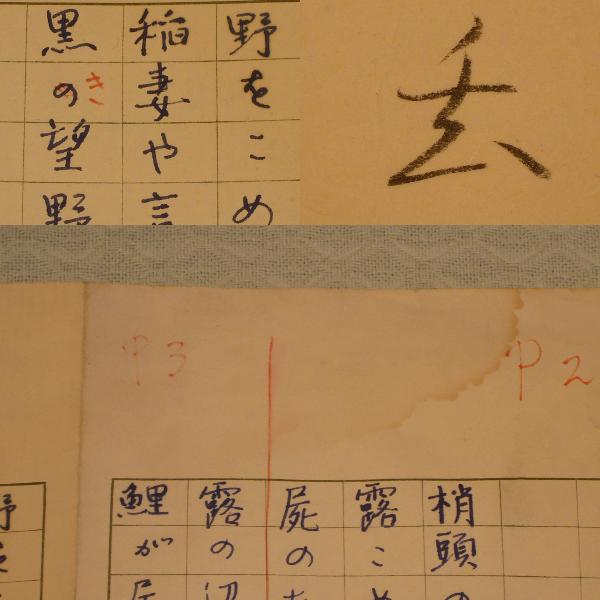 野をこめ
稲妻や言
黒の望野
き
P2
P3
梢頭の
露こめ
屍の
露の辺
鯉が